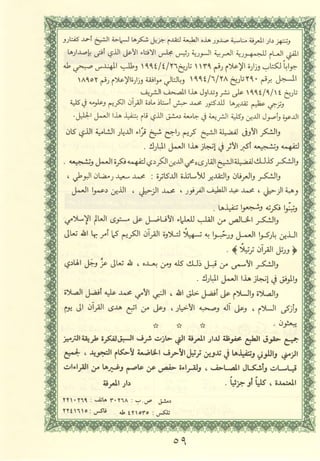 وتنتهز دار المعرفة مناسبة صدور هذه الطبعة لتقدم جزيل شكرها لسماحة الشيخ أحمد كفتارو
المفتي العام للجمهورية العربية السورية رئيس مجلس الإفتاء الأعلى الذي أفتى بإصدارها
جواباً لكتاب وزارة الإعلام رقم ١١٣٩ تاريخ ١٩٩٤/٤/٢٦
المسجل برقم ٢٩٠ تاريخ ١٩٩٤/٦/٢٨ وبالتالي موافقة وزارة الإعلام رقم ١٨٩٥٢
تاريخ ١٩٩٤/٩/١٤ على نشر وتداول هذا المصحف الشريف
وتزجي عظيم تقديرها للدكتور محمد حبش أستاذ مادة القرآن الكريم وعلومه في كلية
الدعوة وأصول الدين وكلية الشريعة في جامعة دمشق الذي قام بتنفيذ هذا العمل الجليل .
والشكر الأوفى لفضيلة الشيخ كريم راجح شيخ قراء الديار الشامية الذي كان
لتفهمه وتشجيعه أكبر الأثر في إنجاز هذا العمل المبارك .
والشكر كذلك لفضيلة الشيخ القارئ محيي الدين الكردي لتفهمه فكرة العمل وتشجيعه .
والشكر والعرفان والتقدير للأساتذة الدكاترة : محمد سعيد رمضان البوطي ،
وهبة الزحيلي ، محمد عبد اللطيف الفرفور ، محمد الزحيلي ، الذين دعموا العمل
وتبنوا فكرته وشجعوا تنفيذها .
والشكر الخالص من القلب للعلماء الأفاضل على مستوى العالم الإسلامي
الذين باركوا العمل ورحبوا به تسهيلاً لتلاوة القرآن الكريم كما أمر بها الله تعالى
﴿ ورتل القرآن ترتيلا ﴾ .
والشكر الأسمى من قبل ذلك كله ومن بعده ، لله تعالى عز وجل الهادي
والموفق في إنجاز هذا العمل المبارك .
والصلاة والسلام على أفضل خلق الله ، النبي الأمي محمد عليه أفضل الصلاة
وأزكى السلام ، وعلى آله وصحبه الأخيار ، ومن على هدي القرآن سار إلى يوم
يبعثون .
☆ ☆ ☆
جميع حقوق الطبع محفوظة لدار المعرفة التي حازت شرف السبق لفكرة طريقة الترميز
الزمني واللوني وتنفيذها في تدوين ترتيل الأحرف الخاضعة لأحكام التجويد ، لجميع
قياسات وأشكال المصاحف ، ولقراءة حفص عن عاصم وغيرها من القراءات
المعتمدة ، كلياً أو جزئياً .
دار المعرفة
دمشق ص.ب : ٣٠٢٦٨ هاتف : ٢٢١٠٢٦٩
تلكس : ٤٢١٥٣٥ طه . فاكس : ٢٢٤١٦١٥
٥٩